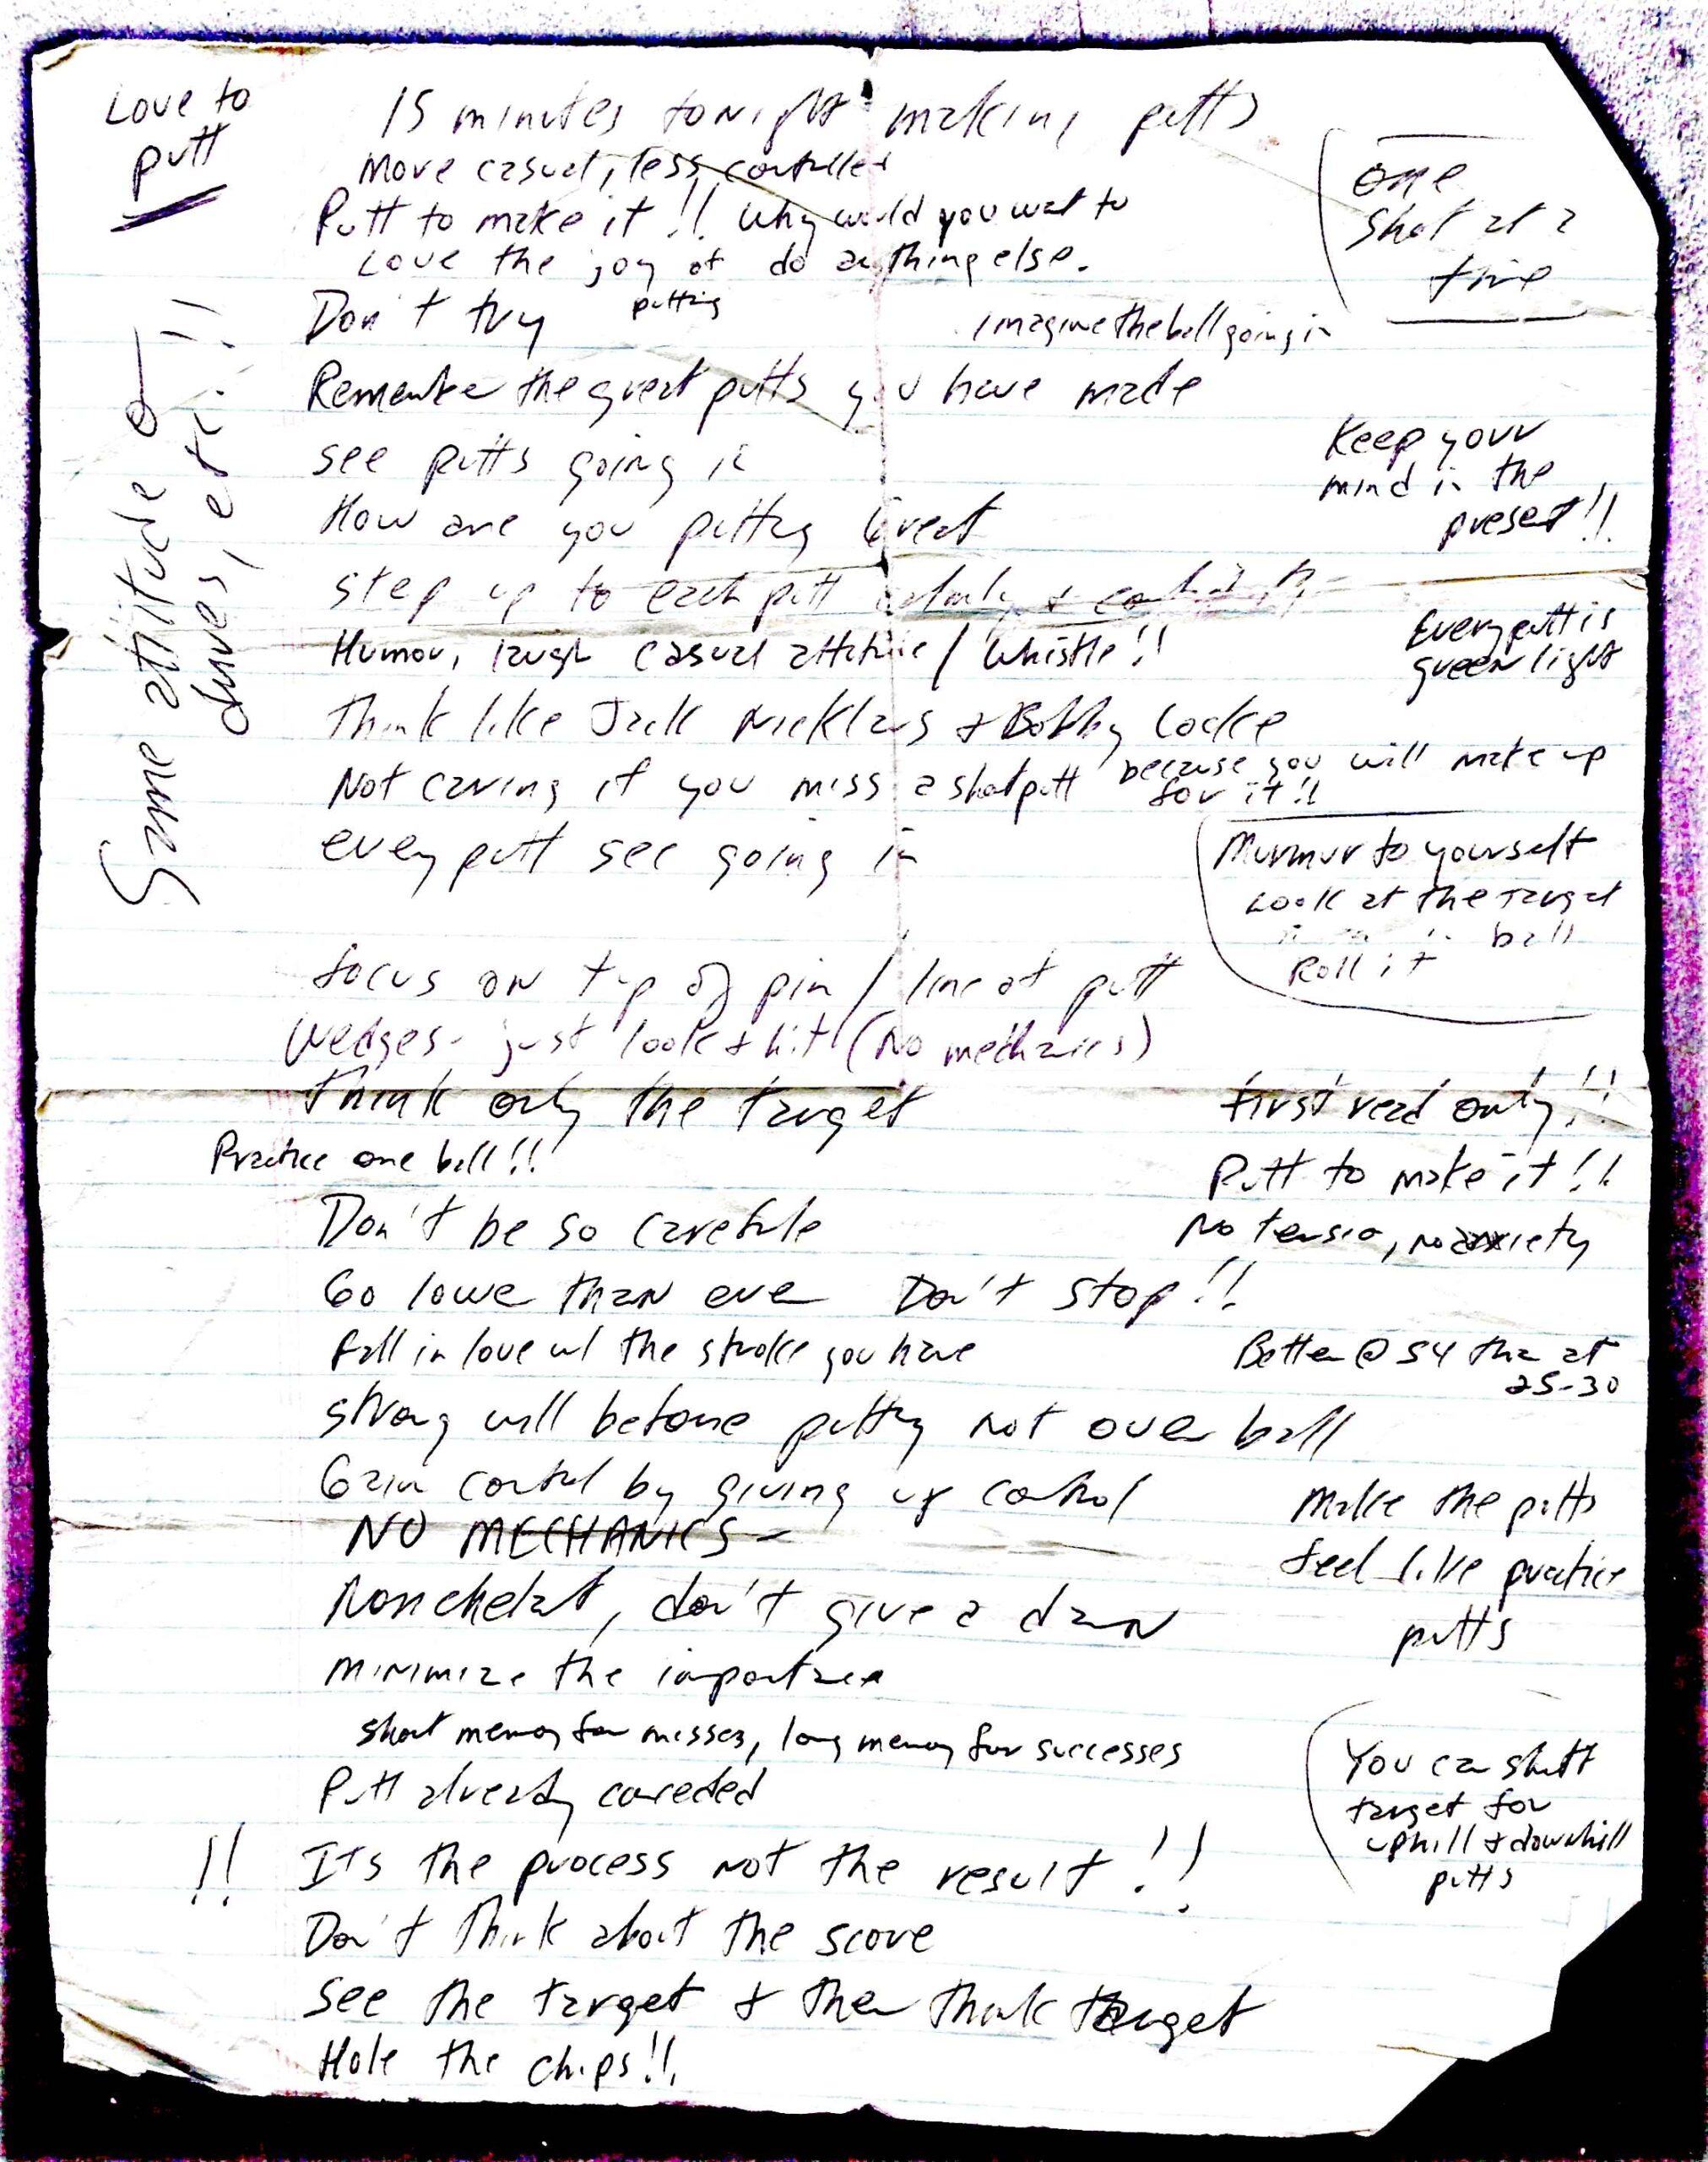 Love to
putt
15 minutes tonight making putts
More casual, less controlled
Putt to make it!! Why would you want to
do anything else.
Love the joy of
putting
one
shot at a
time
Don't try
imagine the ball going in
Remember the great putts you have made
see putts going in
Keep your
mind in the
present!!
How are you putting Great
step up to each putt calmly & confidently
Humor, laugh casual attitude / whistle!!
Every putt is
green light
Same attitude on
drives, etc.!!
Think like Jack Nicklaus & Bobby Locke
Not caring if you miss a short putt because you will make up
for it!!
every putt see going in
Murmur to yourself
Look at the target
ball
Roll it
focus on top of pin / line of putt
Wedges - just look & hit (No mechanics)
Think only the target
first read only!!
Practice one ball!!
Putt to make it!!
Don't be so carefule
No tension, no anxiety
Go lower than ever Don't stop!!
fall in love w/ the stroke you have
Better @ 54 than at
25-30
strong will before putting not over ball
Gain control by giving up control
NO MECHANICS -
Make the putts
feel like practice
putts
Nonchelant, don't give a damn
minimize the importance
short memory for misses, long memory for successes
Putt already conceded
You can shift
target for
uphill & downhill
putts
!! Its the process not the result!!
Don't think about the score
see the target & then think target
Hole the chips!!